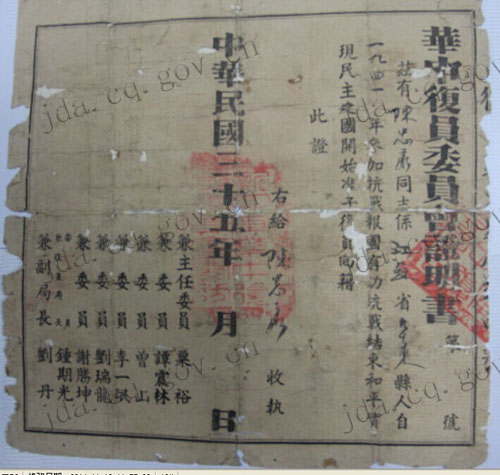 華中復員委員會證明書 第 號
茲有陳忠 同志係江蘇省 東縣人自
一九四一年參加抗戰報國有功抗戰結束和平實
現民主建國開始准予復員回籍
此證
右給 陳忠 收執
兼主任委員 粟裕
兼委員 譚震林
兼委員 曾山
兼委員 李一氓
兼委員 劉瑞龍
兼委員 謝勝坤
鍾期光
兼副局長 劉丹
中華民國三十五年 月 日
jda.cq.gov.cn